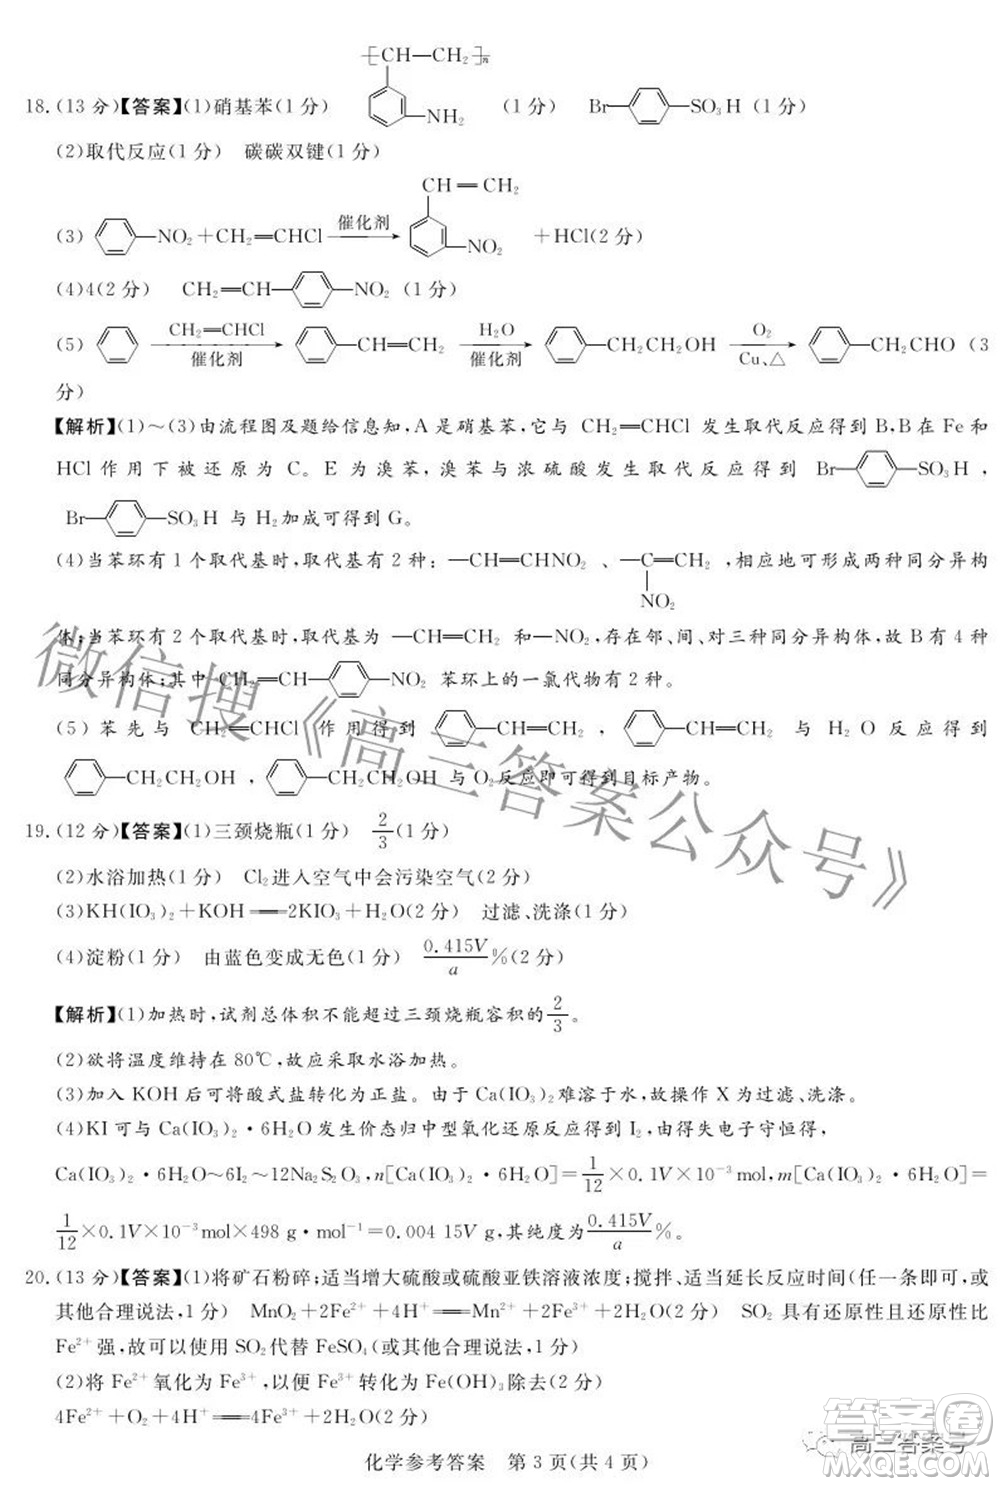 18.(13 分)【答案】(1)硝基苯(1 分) ⁅CH—CH₂⁆ₙ NH₂ (1 分) Br— —SO₃H(1 分)
(2)取代反应(1 分) 碳碳双键(1 分)
(3) —NO₂+CH₂═CHCl 催化剂→ CH═CH₂ —NO₂ +HCl(2 分)
(4)4(2 分) CH₂═CH— —NO₂(1 分)
(5) CH₂═CHCl 催化剂→ —CH═CH₂ H₂O 催化剂→ —CH₂CH₂OH O₂ Cu、△→ —CH₂CHO(3
分)
【解析】(1)～(3)由流程图及题给信息知,A 是硝基苯,它与 CH₂═CHCl 发生取代反应得到 B,B 在 Fe 和
HCl 作用下被还原为 C。E 为溴苯,溴苯与浓硫酸发生取代反应得到 Br— —SO₃H,
Br— —SO₃H 与 H₂加成可得到 G。
(4)当苯环有 1 个取代基时,取代基有 2 种:—CH═CHNO₂、—C═CH₂ NO₂,相应地可形成两种同分异构
体;当苯环有 2 个取代基时,取代基为 —CH═CH₂ 和—NO₂,存在邻、间、对三种同分异构体,故 B 有 4 种
同分异构体;其中 CH₂═CH— —NO₂ 苯环上的一氯代物有 2 种。
(5)苯先与 CH₂═CHCl 作用得到 —CH═CH₂, —CH═CH₂ 与 H₂O 反应得到
—CH₂CH₂OH, —CH₂CH₂OH 与 O₂反应即可得到目标产物。
19.(12 分)【答案】(1)三颈烧瓶(1 分) 2/3(1 分)
(2)水浴加热(1 分) Cl₂进入空气中会污染空气(2 分)
(3)KH(IO₃)₂+KOH══2KIO₃+H₂O(2 分) 过滤、洗涤(1 分)
(4)淀粉(1 分) 由蓝色变成无色(1 分) 0.415V/a%(2 分)
【解析】(1)加热时,试剂总体积不能超过三颈烧瓶容积的2/3。
(2)欲将温度维持在 80℃,故应采取水浴加热。
(3)加入 KOH 后可将酸式盐转化为正盐。由于 Ca(IO₃)₂难溶于水,故操作 X 为过滤、洗涤。
(4)KI 可与 Ca(IO₃)₂·6H₂O 发生价态归中型氧化还原反应得到 I₂,由得失电子守恒得,
Ca(IO₃)₂·6H₂O～6I₂～12Na₂S₂O₃,n[Ca(IO₃)₂·6H₂O]=1/12×0.1V×10⁻³mol,m[Ca(IO₃)₂·6H₂O]=
1/12×0.1V×10⁻³mol×498 g·mol⁻¹=0.004 15V g,其纯度为0.415V/a%。
20.(13 分)【答案】(1)将矿石粉碎;适当增大硫酸或硫酸亚铁溶液浓度;搅拌、适当延长反应时间(任一条即可,或
其他合理说法,1 分) MnO₂+2Fe²⁺+4H⁺══Mn²⁺+2Fe³⁺+2H₂O(2 分) SO₂ 具有还原性且还原性比
Fe²⁺强,故可以使用 SO₂代替 FeSO₄(或其他合理说法,1 分)
(2)将 Fe²⁺氧化为 Fe³⁺,以便 Fe³⁺转化为 Fe(OH)₃除去(2 分)
4Fe²⁺+O₂+4H⁺══4Fe³⁺+2H₂O(2 分)
化学参考答案 第 3 页(共 4 页)
微信搜《高三答案公众号》
高三答案号
答案圈
MXQE.COM